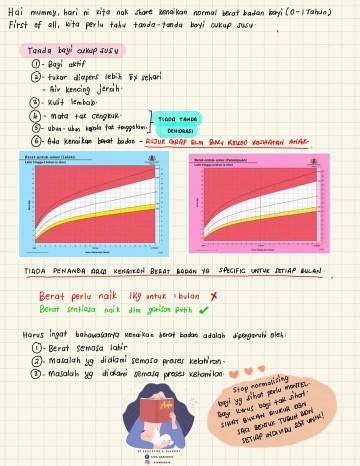 Hai mummy, hari ni kita nak share kenaikan normal berat badan bayi (0-1 Tahun)
First of all, kita perlu tahu tanda-tanda bayi cukup susu.
Tanda bayi cukup susu
① - Bayi aktif
② - tukar diapers lebih 5x sehari
- Air kencing jernih.
③ - Kulit lembab.
④ - Mata tak cengkung.
⑤ - ubun-ubun kepala tak tenggelam.
TIADA TANDA
DEHIDRASI
⑥ - Ada kenaikan berat badan - RUJUK GRAF DLM BUKU REKOD KESIHATAN ANAK.
Berat-untuk-umur (Lelaki)
Berat-untuk-umur (Perempuan)
TIADA PENANDA ARAS KENAIKAN BERAT BADAN YG SPECIFIC UNTUK SETIAP BULAN.
Berat perlu naik 1Kg untuk 1 bulan ✗
Berat sentiasa naik dlm garisan putih ✓
Harus ingat bahawasanya kenaikan berat badan adalah dipengaruhi oleh:
① - Berat semasa lahir
② - Masalah yg dialami semasa proses kelahiran.
③ - Masalah yg dialami semasa proses kehamilan.
Stop normalising
bayi yg sihat perlu montel.
Bayi kurus bayi tak sihat.
SIHAT BUKAN DIUKUR DGN
SAIZ BENTUK TUBUH DAN
SETIAP INDIVIDU IST UNIK!